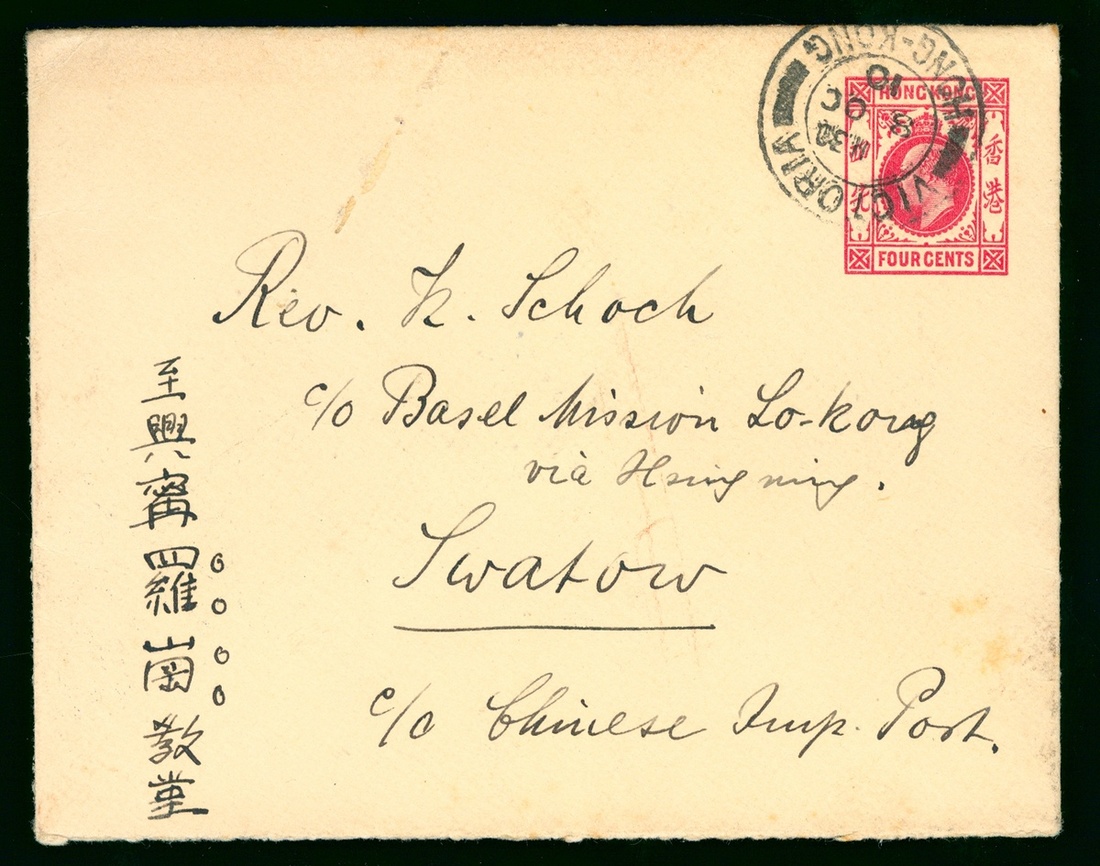 VICTORIA
HONG-KONG
8 OC
10
HONG KONG
香港
FOUR CENTS
Rev. K. Schoch
c/o Basel Mission Lo-kong
via Hsingning.
Swatow
c/o Chinese Imp. Post.
至興甯羅崗教堂